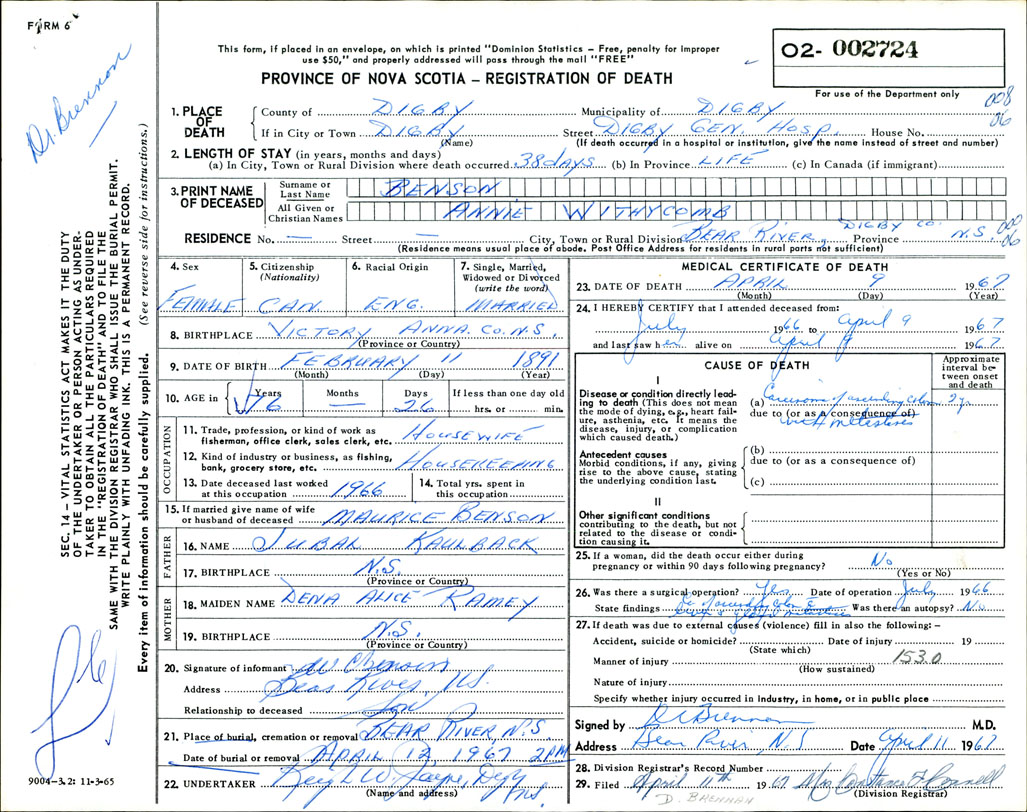 FORM 6
Dr. Brennan
This form, if placed in an envelope, on which is printed "Dominion Statistics – Free, penalty for improper
use $50," and properly addressed will pass through the mail "FREE"
PROVINCE OF NOVA SCOTIA – REGISTRATION OF DEATH
02- 002724
For use of the Department only
008
06
1. PLACE OF DEATH County of DIGBY Municipality of DIGBY
If in City or Town DIGBY Street DIGBY GEN. HOSP. House No.
(Name) (If death occurred in a hospital or institution, give the name instead of street and number)
2. LENGTH OF STAY (in years, months and days)
(a) In City, Town or Rural Division where death occurred 38 days (b) In Province LIFE (c) In Canada (if immigrant)
3. PRINT NAME OF DECEASED Surname or Last Name BENSON
All Given or Christian Names ANNIE WITHYCOMB
RESIDENCE No. — Street — City, Town or Rural Division BEAR RIVER, DIGBY CO. Province N.S. 06
(Residence means usual place of abode. Post Office Address for residents in rural parts not sufficient)
4. Sex 5. Citizenship (Nationality) 6. Racial Origin 7. Single, Married, Widowed or Divorced (write the word)
FEMALE CAN. ENG. MARRIED
8. BIRTHPLACE VICTORY ANNA. CO. N.S.
(Province or Country)
9. DATE OF BIRTH FEBRUARY 11 1891
(Month) (Day) (Year)
10. AGE in Years Months Days If less than one day old
76 — 26 hrs. or min.
OCCUPATION
11. Trade, profession, or kind of work as fisherman, office clerk, sales clerk, etc. HOUSEWIFE
12. Kind of industry or business, as fishing, bank, grocery store, etc. HOUSEKEEPING
13. Date deceased last worked at this occupation 1966 14. Total yrs. spent in this occupation
15. If married give name of wife or husband of deceased MAURICE BENSON
FATHER
16. NAME JUBAL KAULBACK
17. BIRTHPLACE N.S.
(Province or Country)
MOTHER
18. MAIDEN NAME DENA ALICE RAMEY
19. BIRTHPLACE N.S.
(Province or Country)
20. Signature of informant
Address Bear River, N.S.
Relationship to deceased Son
21. Place of burial, cremation or removal BEAR RIVER, N.S.
Date of burial or removal APRIL 12 1967 2 PM
22. UNDERTAKER Digby N.S.
(Name and address)
MEDICAL CERTIFICATE OF DEATH
23. DATE OF DEATH APRIL 9 1967
(Month) (Day) (Year)
24. I HEREBY CERTIFY that I attended deceased from:
July 1966 to April 9 1967
and last saw her alive on April 9 1967
CAUSE OF DEATH Approximate interval between onset and death
I
Disease or condition directly leading to death (This does not mean the mode of dying, e.g., heart failure, asthenia, etc. It means the disease, injury, or complication which caused death.)
(a) Carcinoma of ascending colon 2 y.
due to (or as a consequence of)
with metastases
Antecedent causes
Morbid conditions, if any, giving rise to the above cause, stating the underlying condition last.
(b)
due to (or as a consequence of)
(c)
II
Other significant conditions
contributing to the death, but not related to the disease or condition causing it.
25. If a woman, did the death occur either during pregnancy or within 90 days following pregnancy? No
(Yes or No)
26. Was there a surgical operation? Yes Date of operation July 1966
State findings Ca of ascending colon Was there an autopsy? No
27. If death was due to external causes (violence) fill in also the following: –
Accident, suicide or homicide? Date of injury 19
(State which)
Manner of injury 153.0
(How sustained)
Nature of injury
Specify whether injury occurred in Industry, in home, or in public place
Signed by Brennan M.D.
Address Bear River, N.S. Date April 11 1967
28. Division Registrar's Record Number
29. Filed April 11th 1967 Mrs Constance
(Division Registrar)
D. BRENNAN
SEC. 14 – VITAL STATISTICS ACT MAKES IT THE DUTY
OF THE UNDERTAKER OR PERSON ACTING AS UNDER-
TAKER TO OBTAIN ALL THE PARTICULARS REQUIRED
IN THE "REGISTRATION OF DEATH" AND TO FILE THE
SAME WITH THE DIVISION REGISTRAR WHO SHALL ISSUE THE BURIAL PERMIT.
WRITE PLAINLY WITH UNFADING INK. THIS IS A PERMANENT RECORD.
Every item of information should be carefully supplied. (See reverse side for instructions.)
9004-3.2: 11-3-65